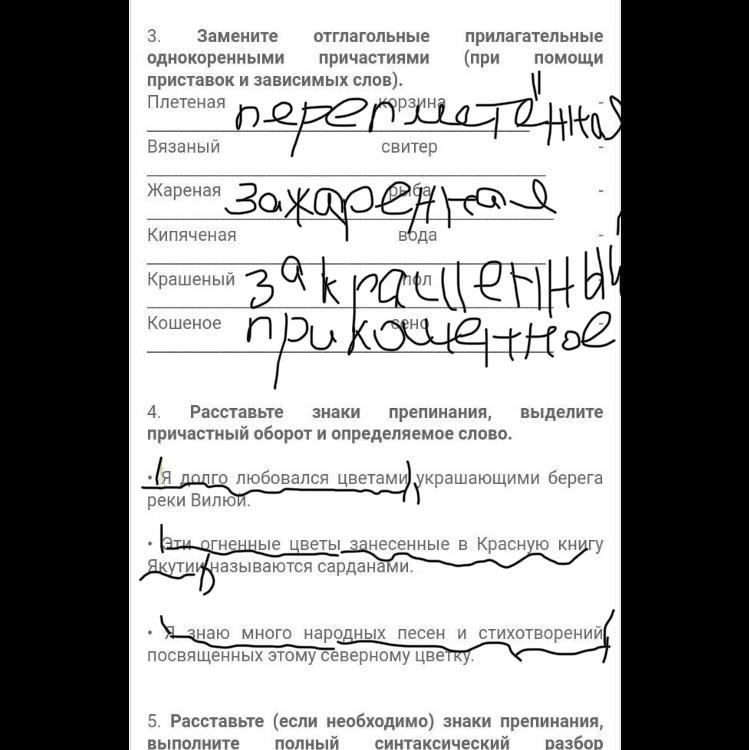 3. Замените отглагольные прилагательные
однокоренными причастиями (при помощи
приставок и зависимых слов).
Плетеная корзина -
переплетённая
Вязаный свитер -
Жареная рыба -
зажаренная
Кипяченая вода -
Крашеный пол
закрашенный
Кошеное сено -
прикошенное
4. Расставьте знаки препинания, выделите
причастный оборот и определяемое слово.
• Я долго любовался цветами, украшающими берега
реки Вилюй.
• Эти огненные цветы занесенные в Красную книгу
Якутии, называются сарданами.
• Я знаю много народных песен и стихотворений,
посвященных этому северному цветку.
5. Расставьте (если необходимо) знаки препинания,
выполните полный синтаксический разбор